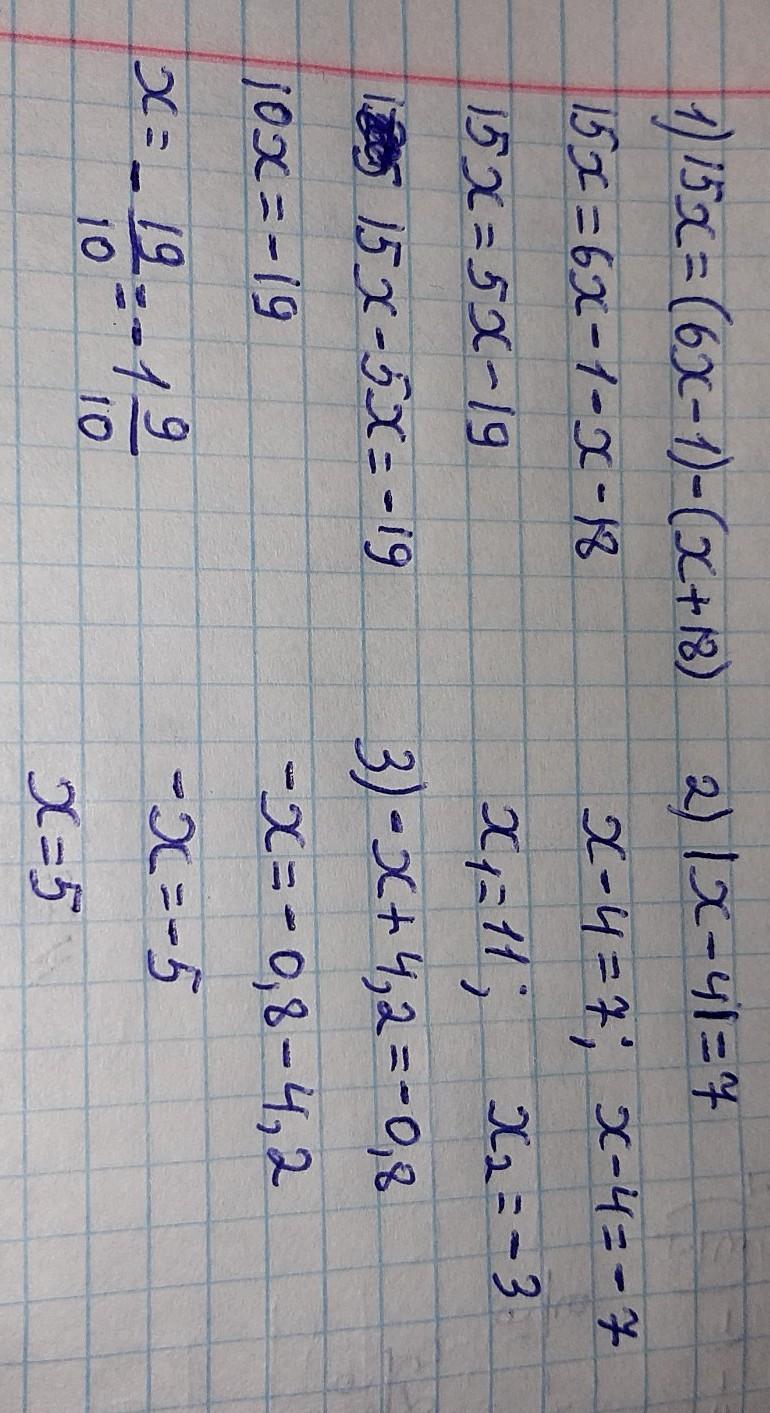 1) 15x = (6x - 1) - (x + 18)
15x = 6x - 1 - x - 18
15x = 5x - 19
15x - 5x = -19
10x = -19
x = - 19/10 = -1 9/10
2) |x - 4| = 7
x - 4 = 7; x - 4 = -7
x₁ = 11; x₂ = -3
3) -x + 4,2 = -0,8
-x = -0,8 - 4,2
-x = -5
x = 5